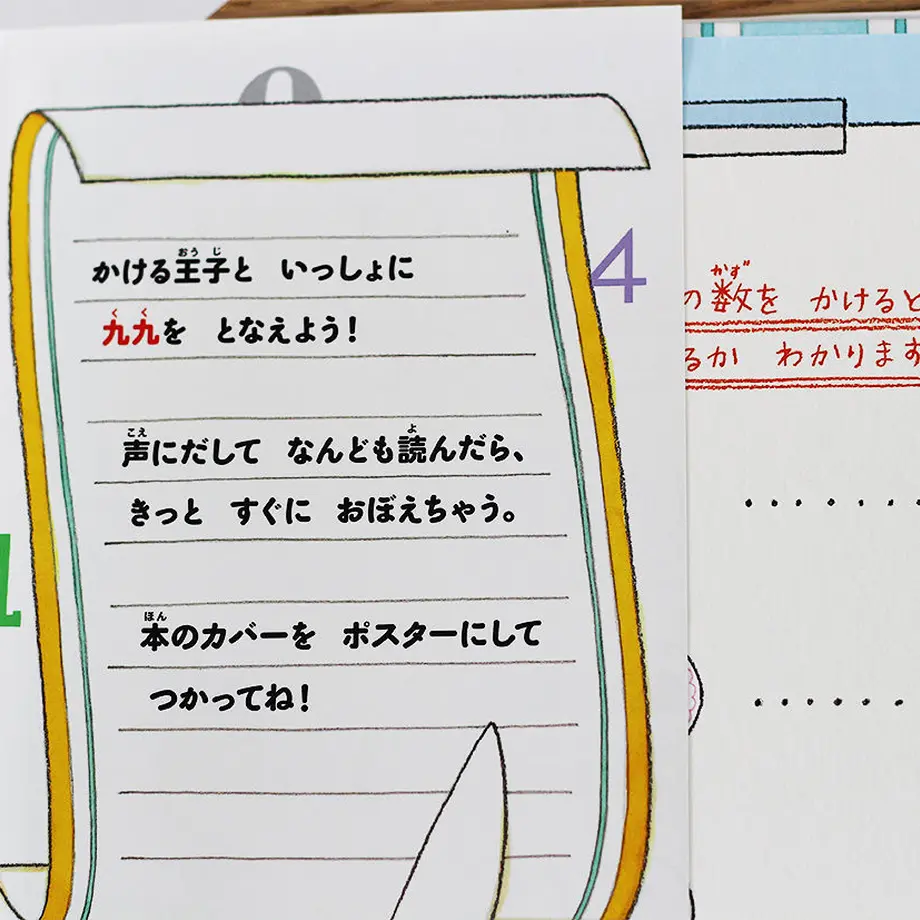 かける王子と いっしょに
九九を となえよう!
声にだして なんども読んだら、
きっと すぐに おぼえちゃう。
本のカバーを ポスターにして
つかってね!
4
の数を かけると
るか わかります